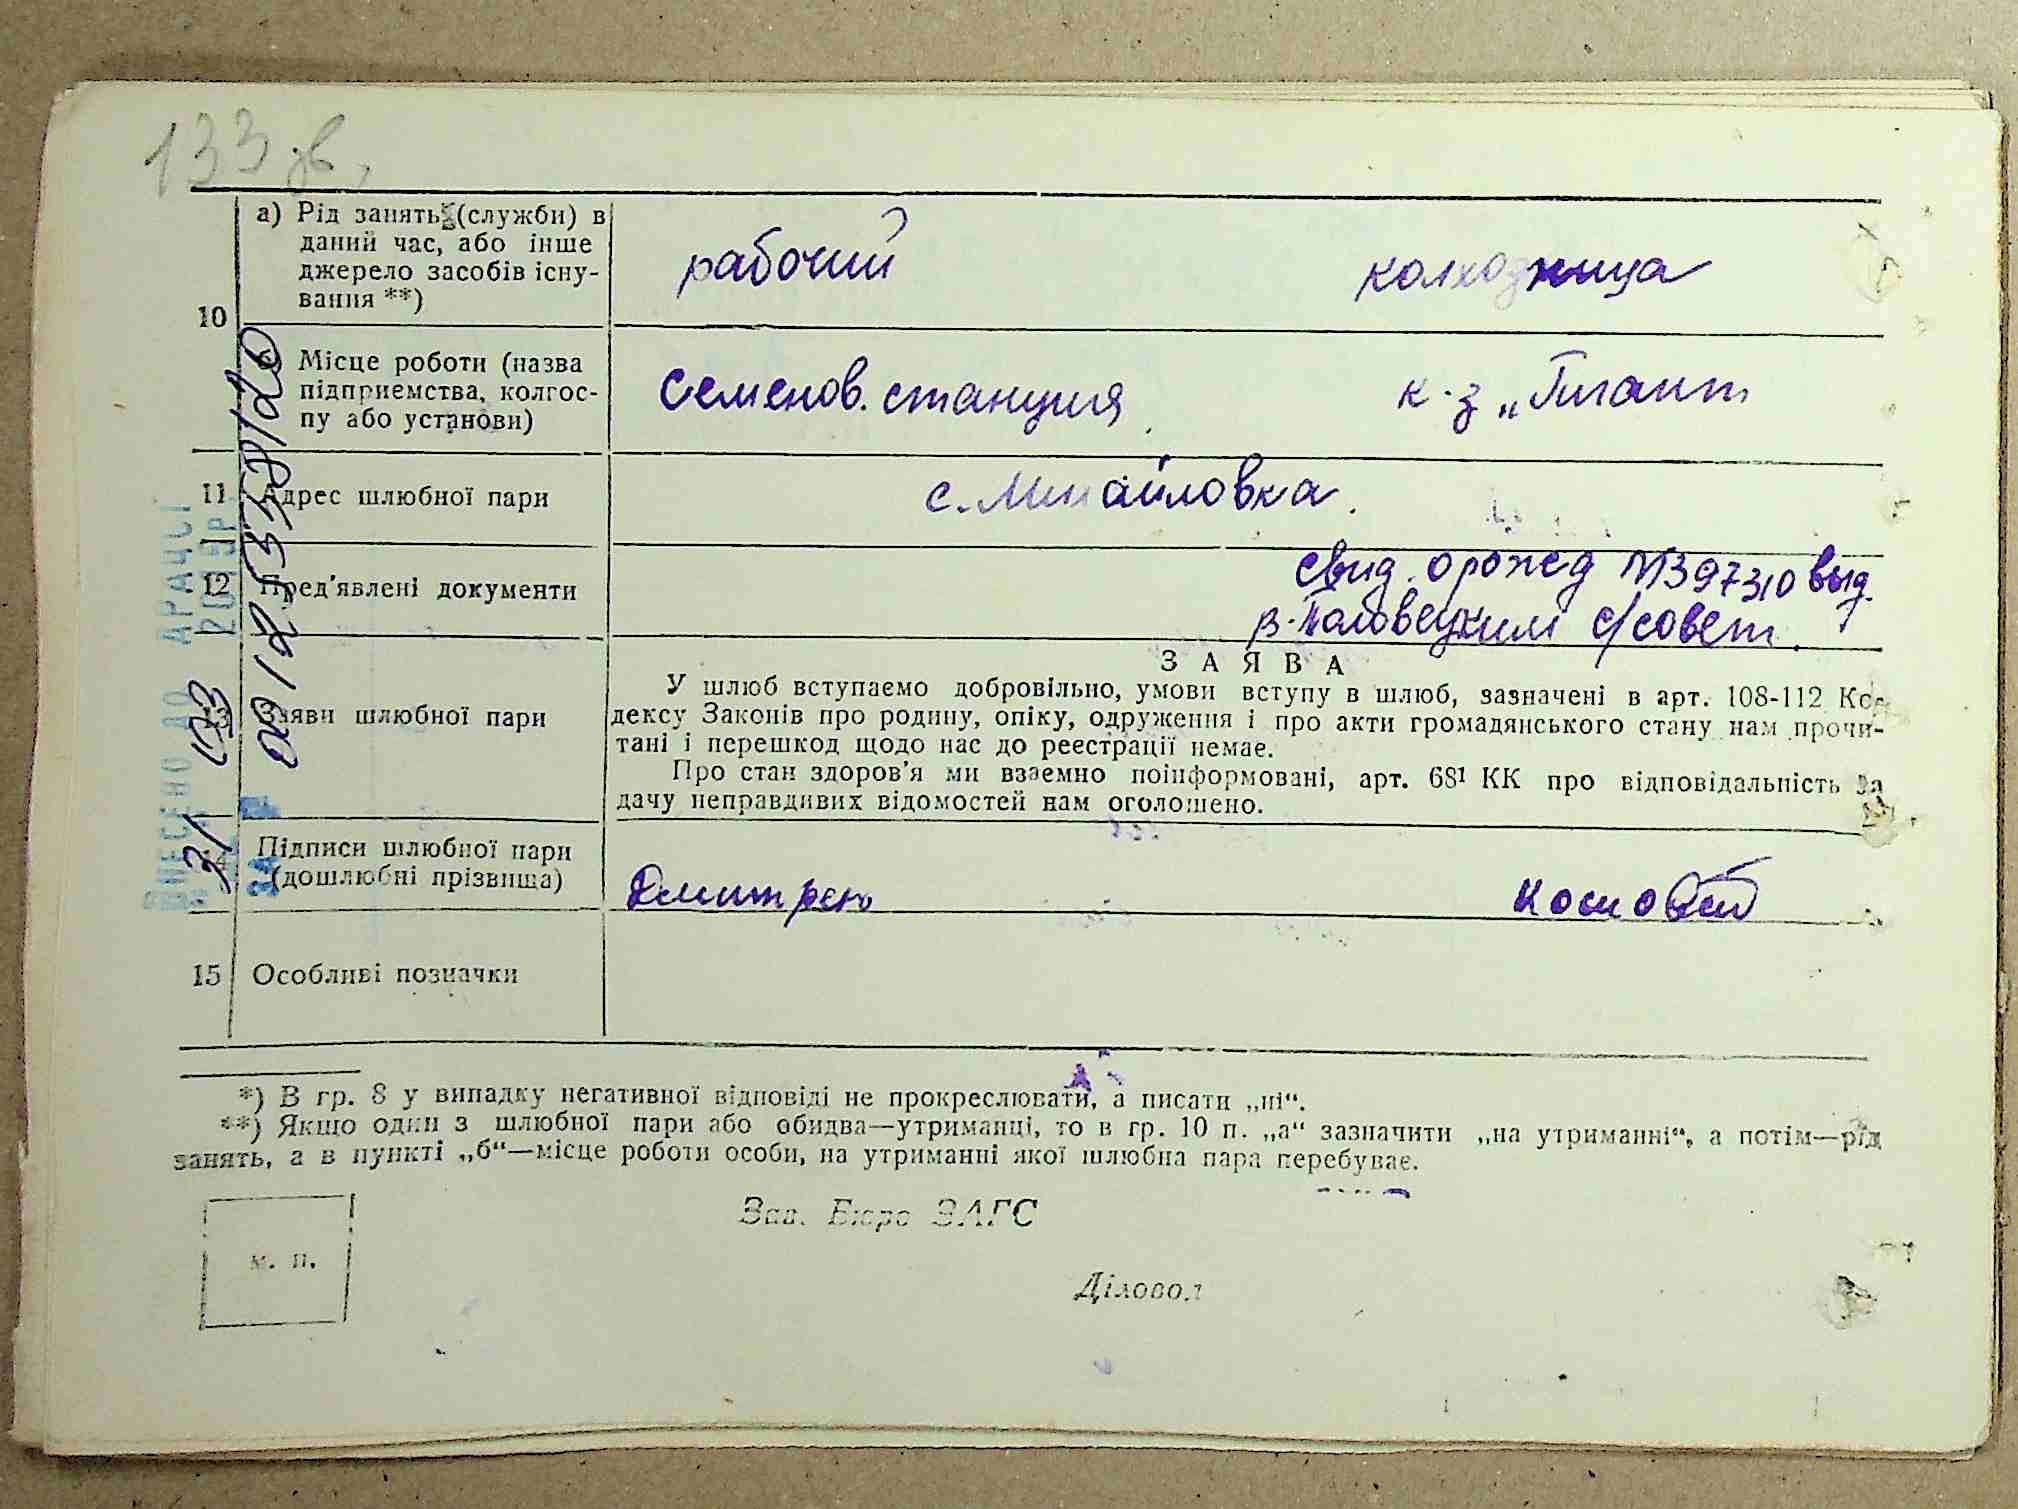 133 зв,
а) Рід занять (служби) в
даний час, або інше
джерело засобів існу-
вання **)
рабочий
колхозница
10
Місце роботи (назва
підприємства, колгос-
пу або установи)
Семенов. станция
к-з „Гигант
11 Адрес шлюбної пари
с. Михайловка.
12 Пред'явлені документи
свид. о рожед №397310 выд.
с/совет.
13 Заяви шлюбної пари
ЗАЯВА
У шлюб вступаємо добровільно, умови вступу в шлюб, зазначені в арт. 108-112 Ко-
дексу Законів про родину, опіку, одруження і про акти громадянського стану нам прочи-
тані і перешкод щодо нас до реєстрації немає.
Про стан здоров'я ми взаємно поінформовані, арт. 68¹ КК про відповідальність за
дачу неправдивих відомостей нам оголошено.
14 Підписи шлюбної пари
(дошлюбні прізвища)
15 Особливі позначки
ВНЕСЕНО ДО ДРАЦСГ
*) В гр. 8 у випадку негативної відповіді не прокреслювати, а писати „ні“.
**) Якщо один з шлюбної пари або обидва—утриманці, то в гр. 10 п. „а“ зазначити „на утриманні“, а потім—рід
занять, а в пункті „б“—місце роботи особи, на утриманні якої шлюбна пара перебуває.
Зав. Бюро ЗАГС
м. п.
Діловод